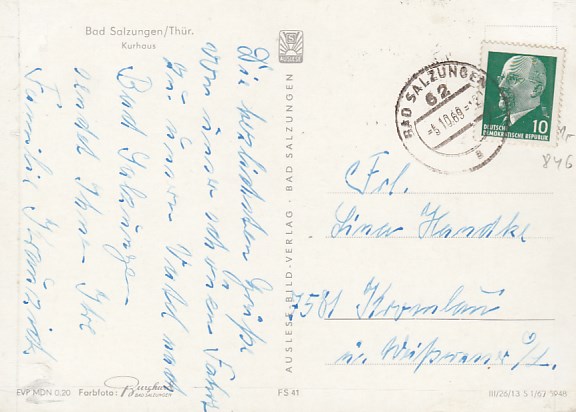 Bad Salzungen/Thür.
Kurhaus
Die herzlichsten Grüße
von unserer schönen Fahrt
in unseren
nach
Bad Salzungen
sendet Ihnen Ihre
Familie
AUSLESE
AUSLESE-BILD-VERLAG · BAD SALZUNGEN
BAD SALZUNGEN
62
-5.10.68-
a
10
DEUTSCHE
DEMOKRATISCHE REPUBLIK
846
Frl.
Lina Handke
7581 Kromlau
ü. Weißwasser O/L.
EVP MDN 0,20 Farbfoto:
BAD SALZUNGEN
FS 41
III/26/13 S 1/67 1948